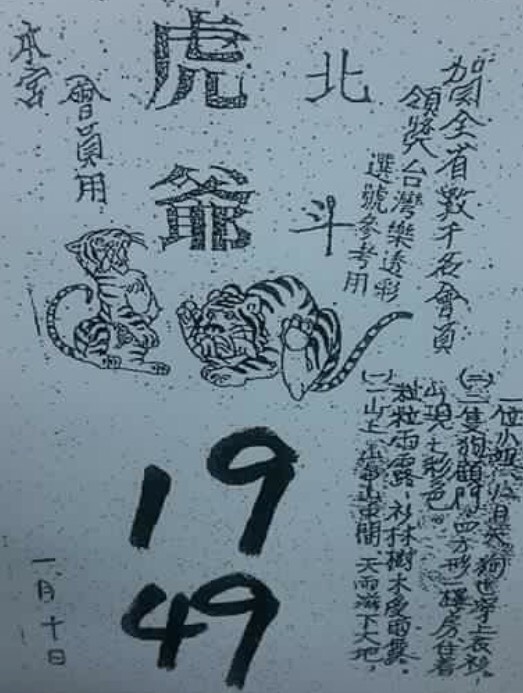 賀全省數千名會員
領獎台灣樂透彩
選號參考用
北斗
虎爺
會員用
本宮
(一)山上 天雨滋下大地,
粒粒雨露、衫林樹木受雨露。
出現七彩色。
(二)二隻狗顧門 四方形 樓房住着
一位小姐 狗也穿上衣褲,
19
49
一月十日